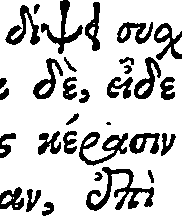 δίψῃ συχ
δὲ, εἶδε
ς κέρασιν
αν, ἐπὶ